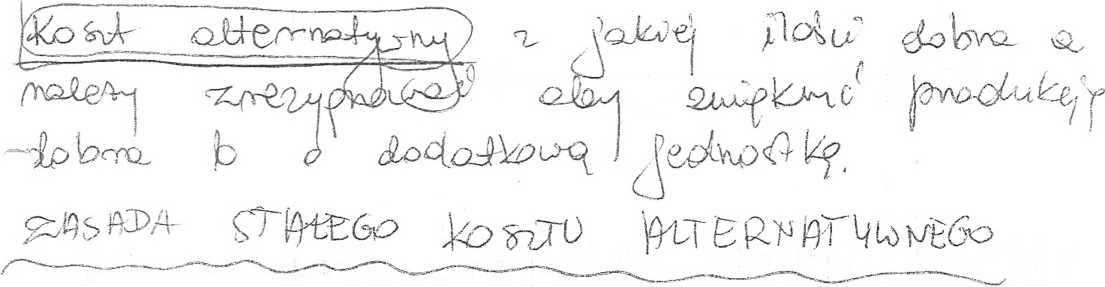 Koszt alternatywny z jakiej ilości dobra a
należy zrezygnować aby zwiększyć produkcję
dobra b o dodatkową jednostkę.
ZASADA STAŁEGO KOSZTU ALTERNATYWNEGO